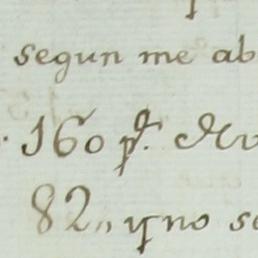 segun me ab
160 p.
82,, y no se